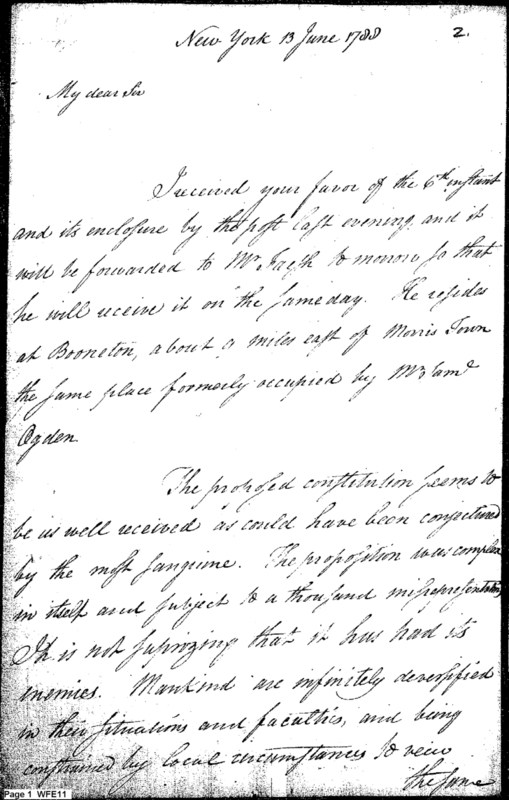 New York 13 June 1788
2.
My dear Sir
I received your favor of the 6th instant
and its enclosure by the post last evening and it
will be forwarded to Mr Faesh to morrow so that
he will receive it on the same day. He resides
at Booneton, about 9 miles east of Morris Town
the same place formerly occupied by Mr Saml
Ogden
The proposed constitution seems to
be as well received as could have been conjectured
by the most sanguine. The proposition was complex
in itself and subject to a thousand misrepresentations
It is not suprizing that it has had its
enemies. Mankind are infinitely deversified
in their situations and faculties, and being
constrained by local circumstances to view
the same
Page 1 WFE11